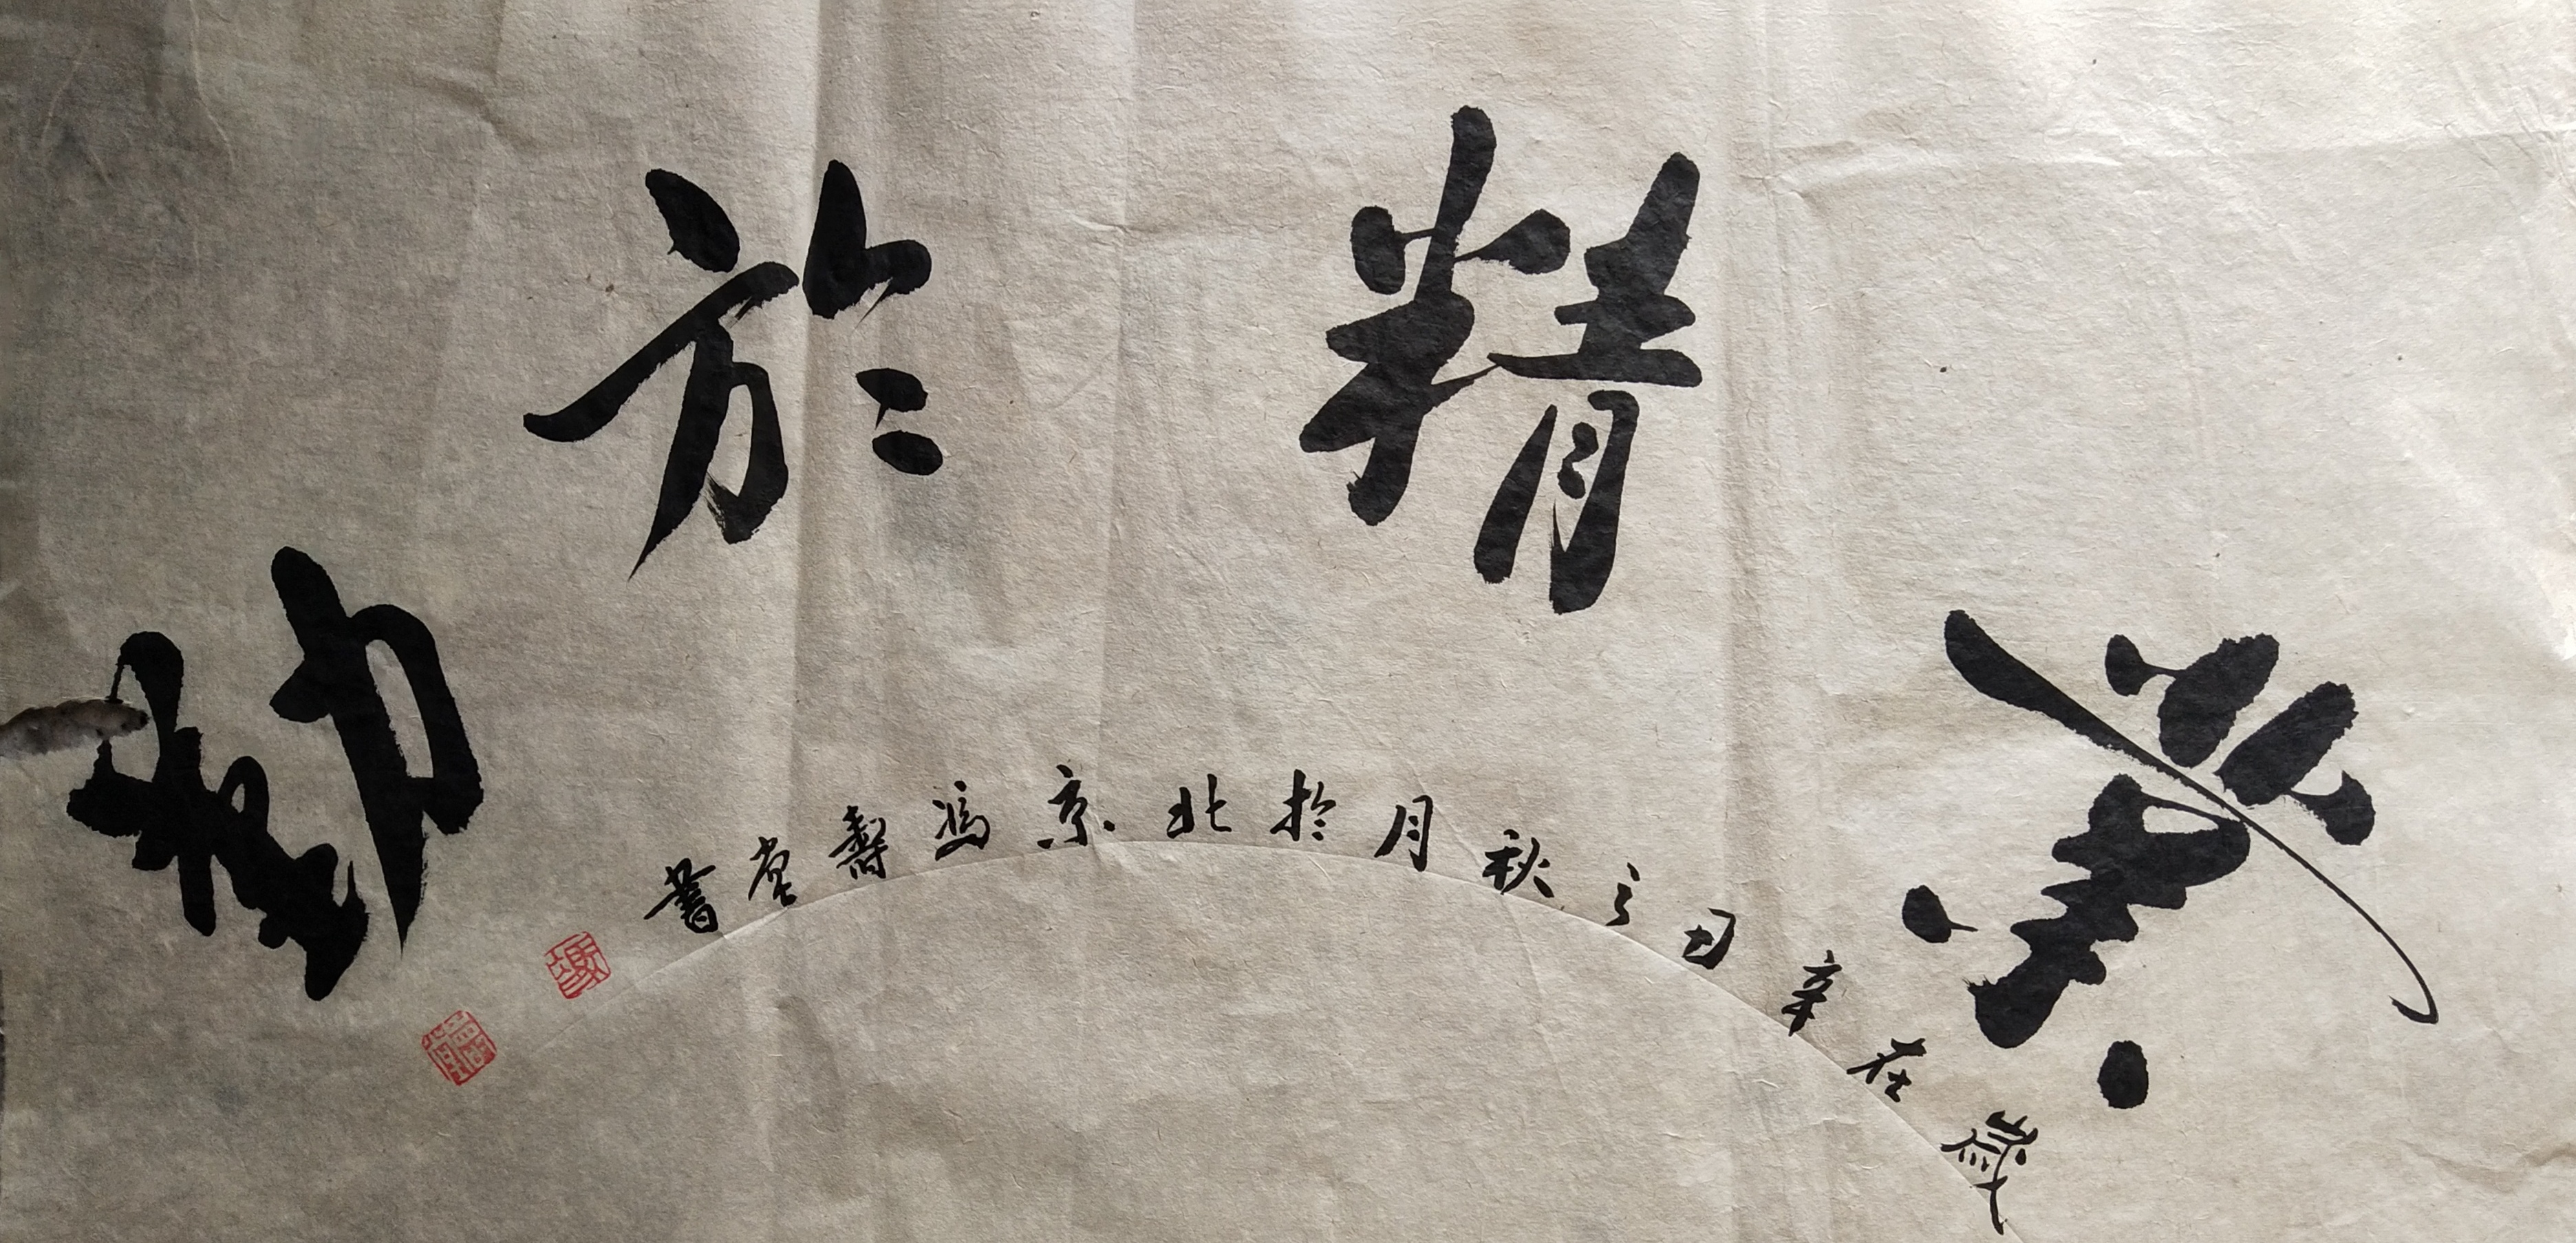 業精於勤
歲在辛丑之秋月於北京馮壽堂書